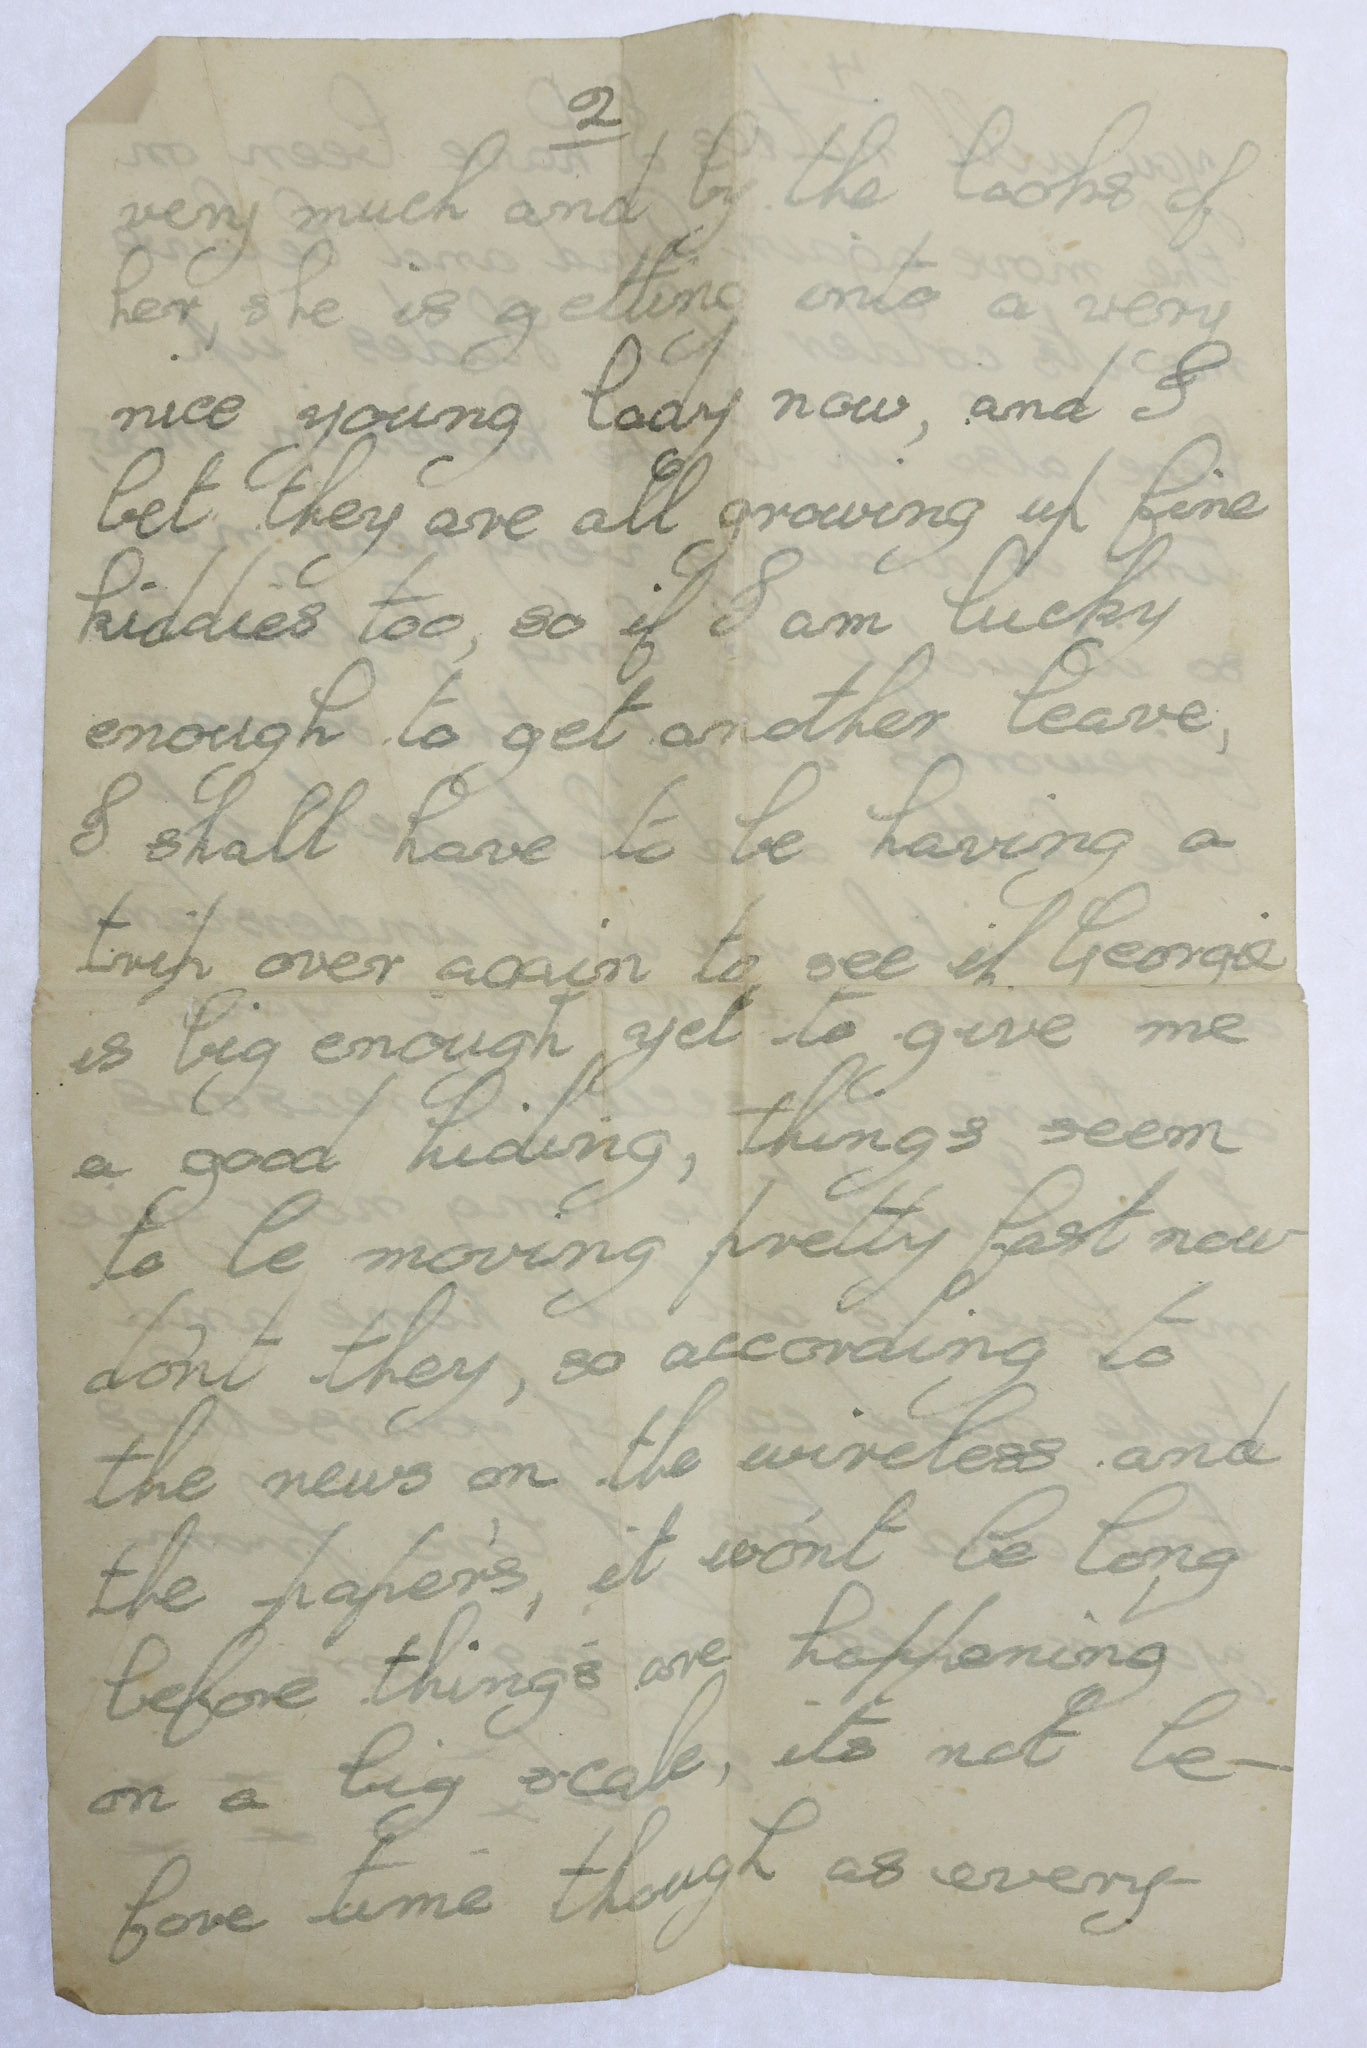 2
very much and by the looks of
her, she is getting into a very
nice young lady now, and I
bet they are all growing up fine
kiddies too, so if I am lucky
enough to get another leave,
I shall have to be having a
trip over again to see if Georgie
is big enough yet to give me
a good hiding, things seem
to be moving pretty fast now
don't they, so according to
the news on the wireless and
the paper's, it won't be long
before thing's are happening
on a big scale, its not be-
fore time though as every-